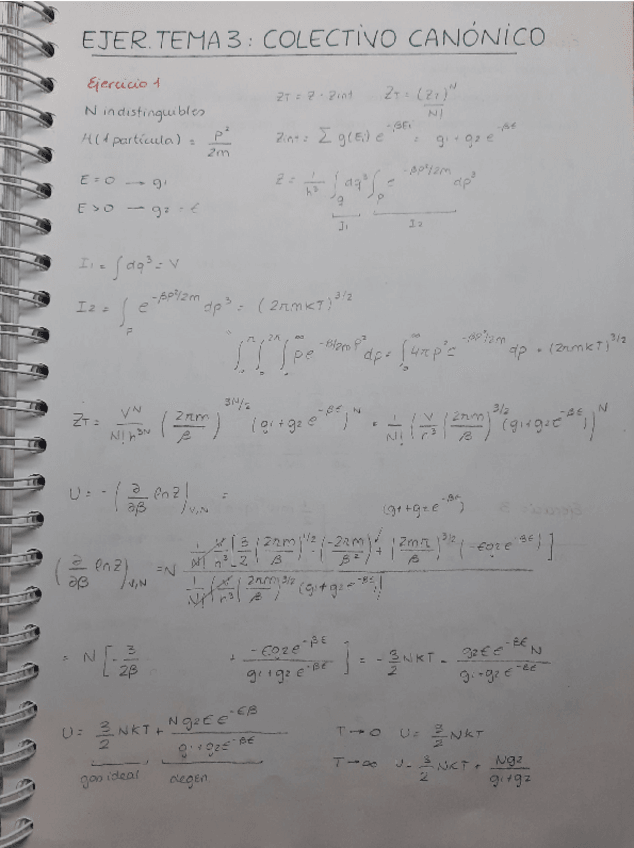 EJER. TEMA 3: COLECTIVO CANÓNICO
Ejercicio 1
N indistinguibles
H(1 partícula) = p²/2m
E=0 → g₁
E>0 → g₂ = ε
Z_T = Z · Z_int   Z_T = (Z_T)^N / N!
Z_int = Σ g(E_i) e^{-βE_i} = g₁ + g₂ e^{-βE}
Z = 1/h³ ∫_q dq³ ∫_p e^{-βp²/2m} dp³
I₁   I₂
I₁ = ∫ dq³ = V
I₂ = ∫_p e^{-βp²/2m} dp³ = (2πmkT)^{3/2}
dp = ∫₀^∞ 4πp² e^{-βp²/2m} dp = (2πmkT)^{3/2}
Z_T = V^N / N! h^{3N} (2πm/β)^{3N/2} (g₁ + g₂ e^{-βE})^N = 1/N! [V/h³ (2πm/β)^{3/2} (g₁ + g₂ e^{-βE})]^N
U = - (∂/∂β ln Z)_{V,N} =
(g₁ + g₂ e^{-βE})
(∂/∂β ln Z)_{V,N} = N 1/N! V/h³ [3/2 (2πm/β)^{1/2} · (-2πm/β²) + (2mπ/β)^{3/2} (-Eg₂ e^{-βE})] / 1/N! V/h³ (2πm/β)^{3/2} (g₁ + g₂ e^{-βE})
= N [-3/2β + -Eg₂ e^{-βE} / g₁ + g₂ e^{-βE}] = -3/2 NKT - g₂ E e^{-βE} N / g₁ + g₂ e^{-βE}
U = 3/2 NKT + N g₂ E e^{-Eβ} / g₁ + g₂ e^{-βE}
gas ideal   degen.
T→0   U = 3/2 NKT
T→∞   U = 3/2 NKT + Ng₂ / g₁+g₂